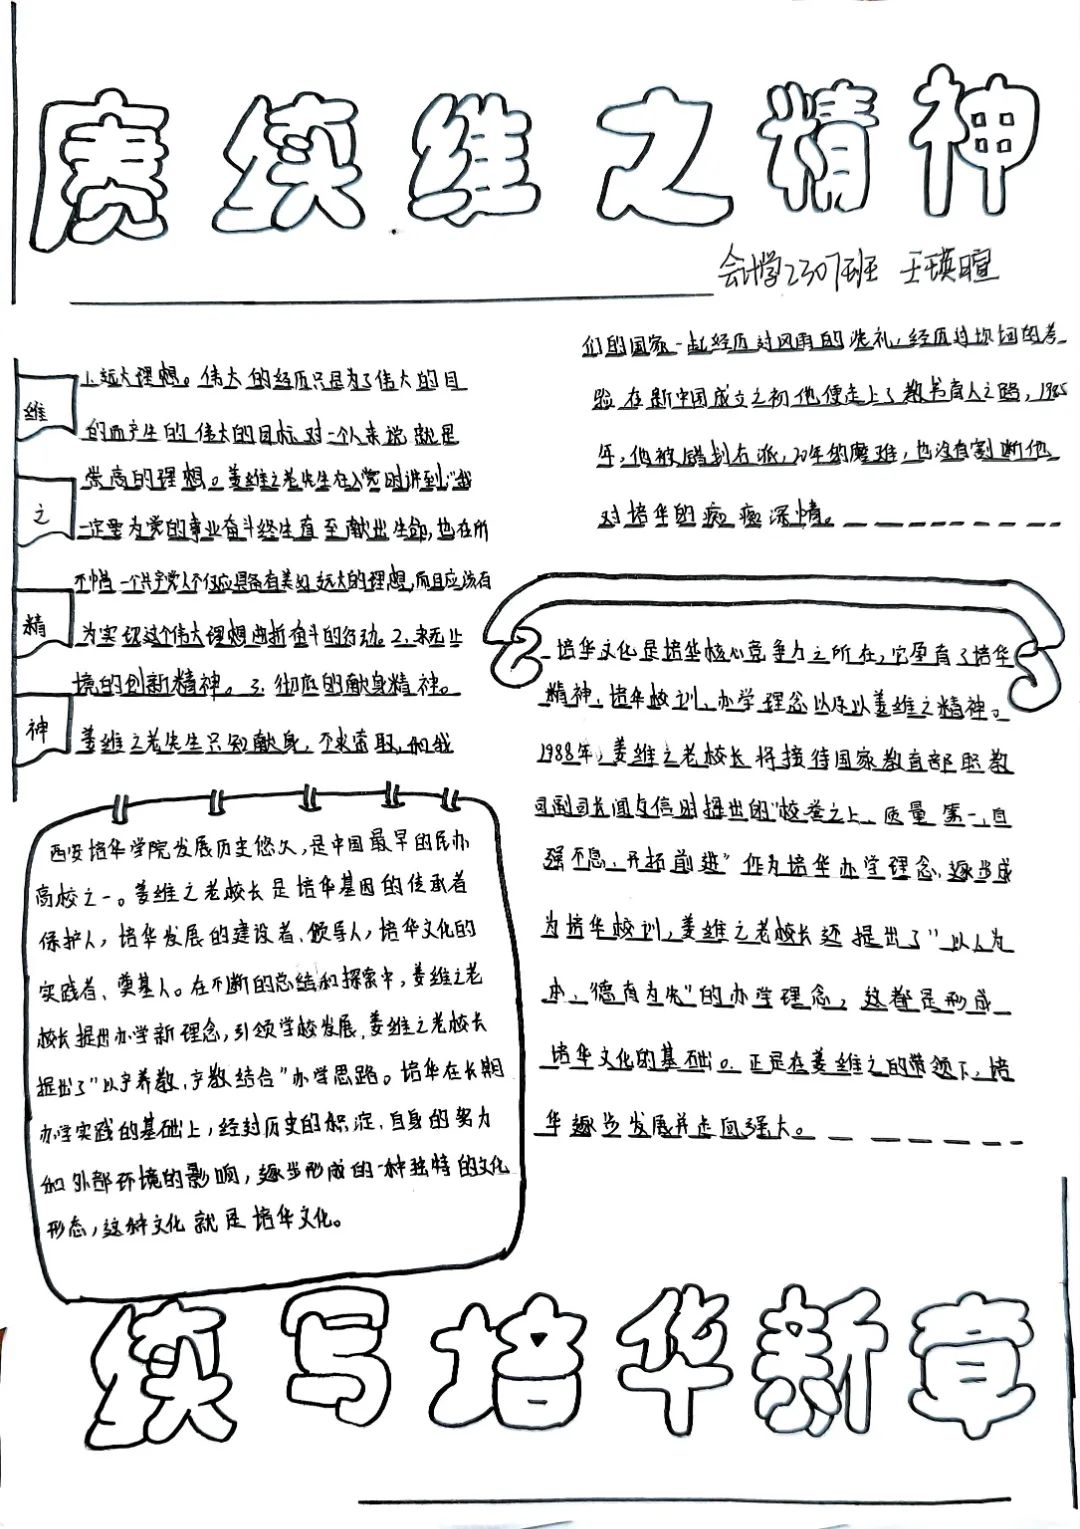 赓续维之精神
会计学2307班 王瑛瑄
维
之
精
神
1.远大理想。伟大的经历只是为了伟大的目
的而产生的伟大的目标对一个人来说就是
崇高的理想。姜维之老先生在入党时讲到:"我
一定要为党的事业奋斗终生直至献出生命,也在所
不惜一个共产党人不仅应具备有美好远大的理想,而且应该有
为实现这个伟大理想曲折奋斗的行动。2.永无止
境的创新精神。3.彻底的献身精神。
姜维之老先生只知献身,不求索取,和我
们的国家一起经历过风雨的洗礼,经历过坎坷的考
验在新中国成立之初他便走上了教书育人之路,1955
年,他被错划右派,20年的磨难,也没有割断他
对培华的痴痴深情。
西安培华学院发展历史悠久,是中国最早的民办
高校之一。姜维之老校长是培华基因的传承者
保护人,培华发展的建设者、领导人,培华文化的
实践者、奠基人。在不断的总结和探索中,姜维之老
校长提出办学新理念,引领学校发展,姜维之老校长
提出了"以产养教,产教结合"办学思路。培华在长期
办学实践的基础上,经过历史的积淀,自身的努力
和外部环境的影响,逐步形成的一种独特的文化
形态,这种文化就是培华文化。
培华文化是培华核心竞争力之所在,它孕育了培华
精神,培华校训,办学理念以及以姜维之精神。
1988年,姜维之老校长将接待国家教育部职教
司副司长闻友信时提出的"校誉之上、质量第一,自
强不息,开拓前进"作为培华办学理念,逐步成
为培华校训,姜维之老校长还提出了"以人为
本、德育为先"的办学理念,这都是形成
培华文化的基础。正是在姜维之的带领下,培
华逐步发展并走向强大。
续写培华新章